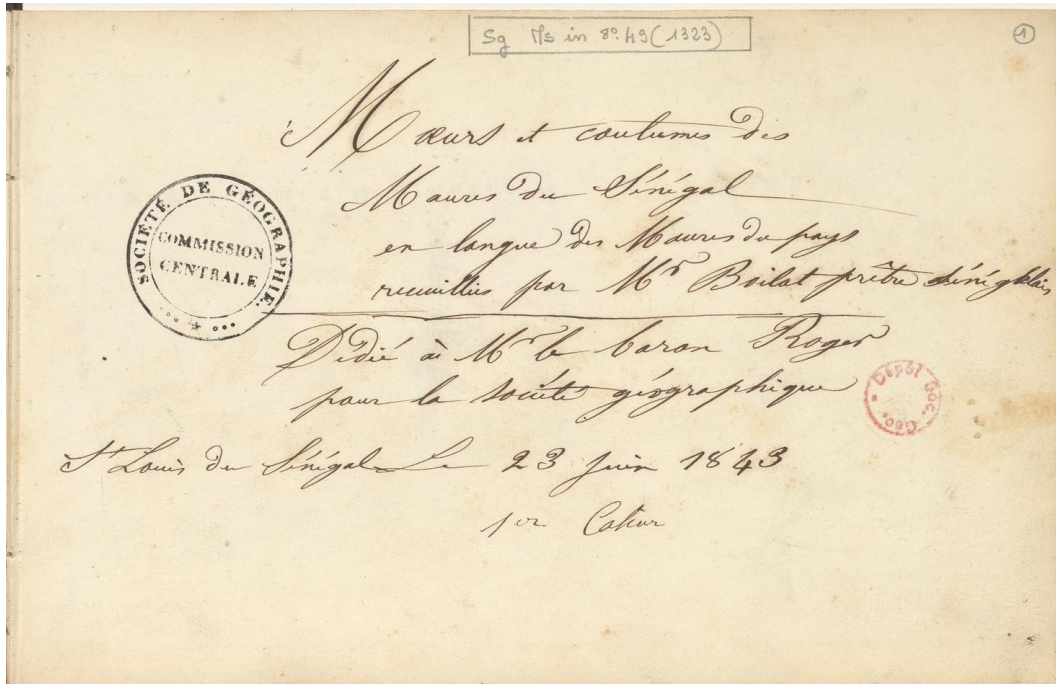 Sg Ms in 8º 49 (1323)
1
Mœurs et coutumes des
Maures du Sénégal
en langue des Maures du pays
recueillies par Mr Boilat prêtre sénégalais
SOCIÉTÉ DE GÉOGRAPHIE
COMMISSION
CENTRALE
Dédié à Mr le baron Roger
pour la société géographique
Dépôt Soc. Géo.
St Louis du Sénégal Le 23 juin 1843
1er Cahier